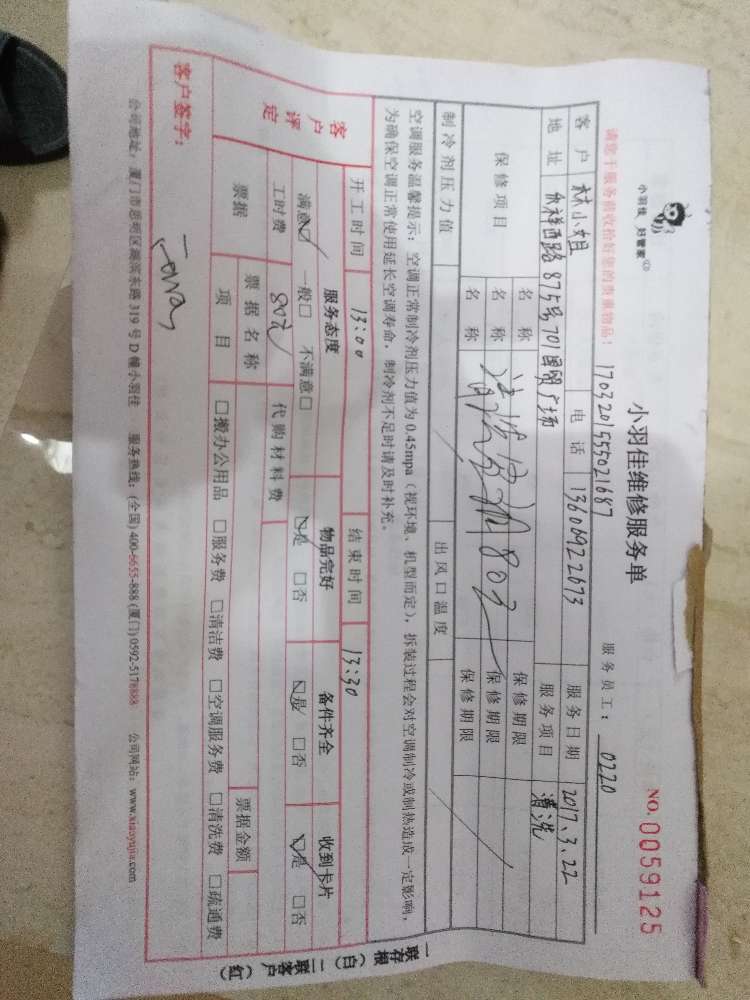 小羽佳 好管家
小羽佳维修服务单
NO.0059125
请您于服务前收拾好您的贵重物品！
170320155502 1687
服务员工： 0220
客户 林小姐 电话 13606922673 服务日期 2017.3.22
地址 875号701国贸广场 服务项目 清洗
保修项目 名称 保修期限
名称 清洗空调 80元 保修期限
名称 保修期限
制冷剂压力值 出风口温度
空调服务温馨提示：空调正常制冷剂压力值为0.45mpa（视环境、机型而定），拆装过程会对空调制冷或制热造成一定影响，
为确保空调正常使用延长空调寿命，制冷剂不足时请及时补充。
开工时间 13:00 结束时间 13:30
客户评定 服务态度 物品完好 备件齐全 收到卡片
满意☑ 一般□ 不满意□ ☑是 □否 ☑是 □否 ☑是 □否
工时费 80元 代购材料费
票据 票据名称 票据金额
项目 □搬办公用品 □服务费 □清洁费 □空调服务费 □清洗费 □疏通费
客户签字：
公司地址：厦门市思明区湖滨东路319号D幢小羽佳 服务热线：(全国) 400-6655-888 (厦门) 0592-5178888 公司网站：www.xiaoyujia.com
一联存根（白） 二联客户（红）